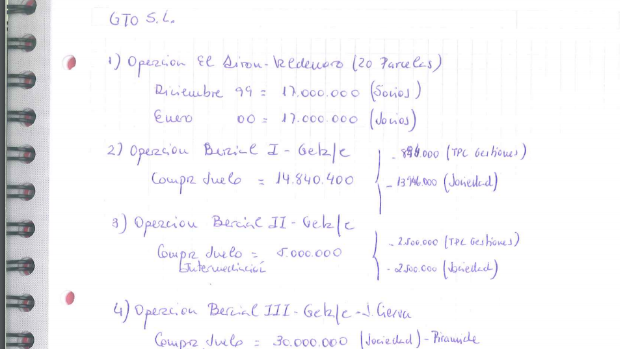 GTO S.L.
1) Operación El Airon-Valdemoro (20 Parcelas)
Diciembre 99 = 17.000.000 (Socios)
Enero 00 = 17.000.000 (Socios)
2) Operación Bercial I - Getafe - (TPC Gestiones)
Compra Suelo = 14.840.400 - (Sociedad)
3) Operación Bercial II - Getafe - 2.500.000 (TPC Gestiones)
Compra Suelo = 5.000.000 - 2.500.000 (Sociedad)
Intermediación
4) Operación Bercial III - Getafe - J. Cierva
Compra Suelo = 30.000.000 (Sociedad) - Piramide